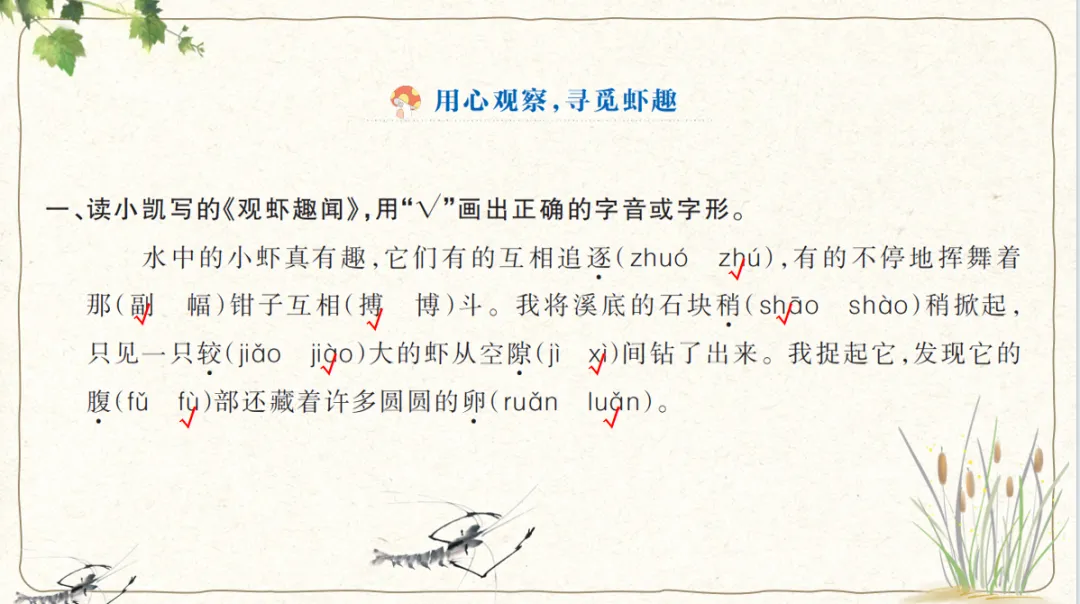 用心观察,寻觅虾趣
一、读小凯写的《观虾趣闻》,用“√”画出正确的字音或字形。
水中的小虾真有趣,它们有的互相追逐(zhuó zhú),有的不停地挥舞着
那(副 幅)钳子互相(搏 博)斗。我将溪底的石块稍(shāo shào)稍掀起,
只见一只较(jiǎo jiào)大的虾从空隙(jì xì)间钻了出来。我捉起它,发现它的
腹(fǔ fù)部还藏着许多圆圆的卵(ruǎn luǎn)。